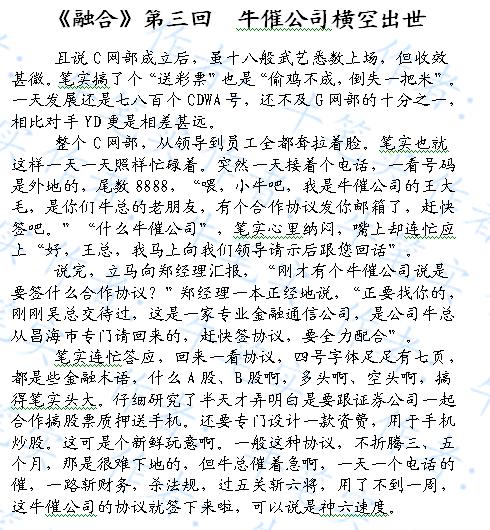 《融合》第三回　牛催公司横空出世
且说C网部成立后，虽十八般武艺悉数上场，但收效
甚微。笔实搞了个“送彩票”也是“偷鸡不成，倒失一把米”。
一天发展还是七八百个CDWA号，还不及G网部的十分之一，
相比对手YD更是相差甚远。
整个C网部，从领导到员工全都耷拉着脸。笔实也就
这样一天一天照样忙碌着。突然一天接着个电话，一看号码
是外地的，尾数8888，“喂，小牛吧，我是牛催公司的王大
毛，是你们牛总的老朋友，有个合作协议发你邮箱了，赶快
签吧。”“什么牛催公司”，笔实心里纳闷，嘴上却连忙应
上“好，王总，我马上向我们领导请示后跟您回话”。
说完，立马向郑经理汇报，“刚才有个牛催公司说是
要签什么合作协议？”郑经理一本正经地说，“正要找你的，
刚刚吴总交待过，这是一家专业金融通信公司，是公司牛总
从昌海市专门请回来的，赶快签协议，要全力配合”。
笔实连忙答应，回来一看协议，四号字体足足有七页，
都是些金融术语，什么A股、B股啊，多头啊、空头啊，搞
得笔实头大。仔细研究了半天才弄明白是要跟证券公司一起
合作搞股票质押送手机。还要专门设计一款资费，用于手机
炒股。这可是个新鲜玩意啊。一般这种协议，不折腾三、五
个月，那是很难下地的，但牛总催着急啊，一天一个电话的
催，一路斩财务，杀法规，过五关斩六将，用了不到一周，
这牛催公司的协议就签下来啦，可以说是神六速度。